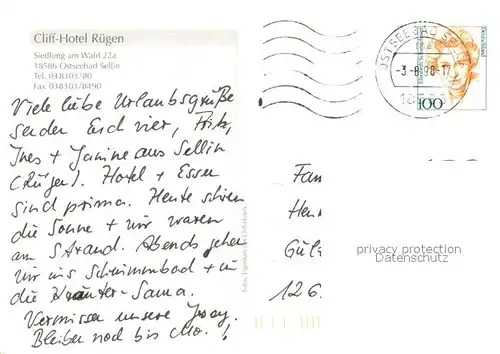 Cliff-Hotel Rügen
Siedlung am Wald 22a
18586 Ostseebad Sellin
Tel. 038303/80
Fax 038303/8490
Viele liebe Urlaubsgrüße
senden Euch vier, Fritz,
Ines + Janine aus Sellin
(Rügen). Hotel + Essen
sind prima. Heute schien
die Sonne + wir waren
am Strand. Abends gehen
wir ins Schwimmbad + in
die Kräuter-Sauna.
Vermissen unsere
Bleiben noch bis Mo. !
OSTSEEBAD
Deutschland
100
Fam
Hen
126
privacy protection
Datenschutz